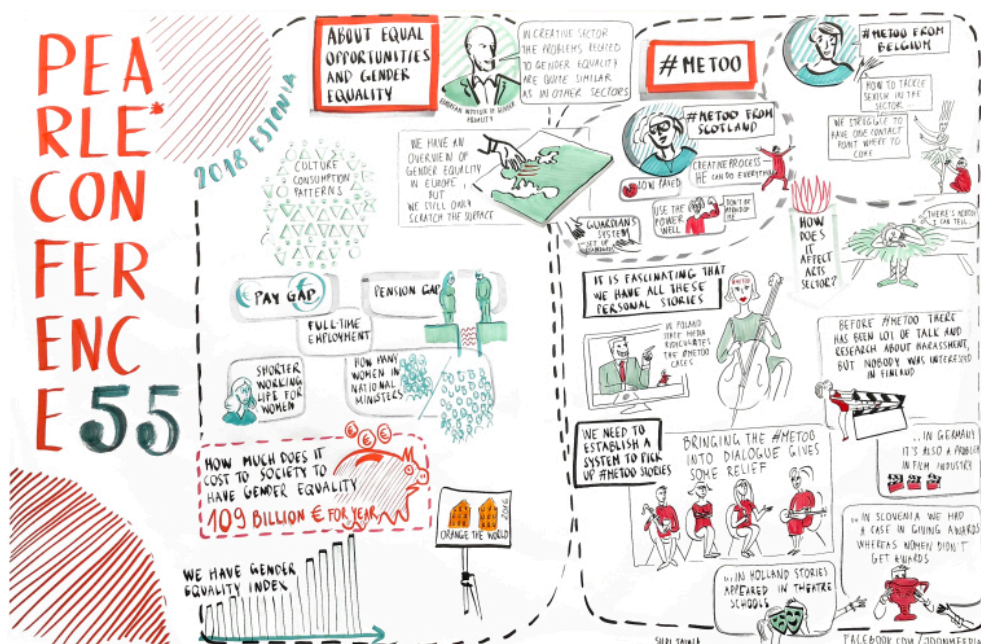 PEA
RLE*
CON
FER
ENC
E 55
2018 ESTONIA
ABOUT EQUAL
OPPORTUNITIES
AND GENDER
EQUALITY
EUROPEAN INSTITUTE OF GENDER
EQUALITY
IN CREATIVE SECTOR
THE PROBLEMS RELATED
TO GENDER EQUALITY
ARE QUITE SIMILAR
AS IN OTHER SECTORS
CULTURE
CONSUMPTION
PATTERNS
WE HAVE AN
OVERVIEW OF
GENDER EQUALITY
IN EUROPE,
BUT
WE STILL ONLY
SCRATCH THE SURFACE
PAY GAP
PENSION GAP
FULL-TIME
EMPLOYMENT
SHORTER
WORKING
LIFE FOR
WOMEN
HOW MANY
WOMEN IN
NATIONAL
MINISTERS
HOW MUCH DOES IT
COST TO SOCIETY TO
HAVE GENDER EQUALITY
109 BILLION € FOR YEAR
ORANGE THE WORLD
2016
WE HAVE GENDER
EQUALITY INDEX
#METOO
#METOO FROM
SCOTLAND
LOW PAYED
CREATIVE PROCESS -
HE CAN DO EVERYTHING
USE THE
POWER
WELL
GUARDIANS
SYSTEM
SET UP
#METOO FROM
BELGIUM
HOW TO TACKLE
SEXISM IN THE
SECTOR...
WE STRUGGLE TO
HAVE ONE CONTACT
POINT WHERE TO
COME
HOW
DOES
IT
AFFECT
ARTS
SECTOR?
THERE'S NOBODY
I CAN TELL...
IT IS FASCINATING THAT
WE HAVE ALL THESE
PERSONAL STORIES
#METOO
IN POLAND
STATE MEDIA
RIDICULATES
THE #METOO
CASES
BEFORE #METOO THERE
HAS BEEN LOT OF TALK AND
RESEARCH ABOUT HARASSMENT,
BUT NOBODY WAS INTERESTED
IN FINLAND
WE NEED TO
ESTABLISH A
SYSTEM TO PICK
UP #METOO STORIES
BRINGING THE #METOO
INTO DIALOGUE GIVES
SOME RELIEF
...IN GERMANY
IT'S ALSO A PROBLEM
IN FILM INDUSTRY
...IN SLOVENIA WE HAD
A CASE IN GIVING AWARDS
WHEREAS WOMEN DIDN'T
GET AWARDS
...IN HOLLAND STORIES
APPEARED IN THEATRE
SCHOOLS
FACEBOOK.COM/JOONMEEDIA